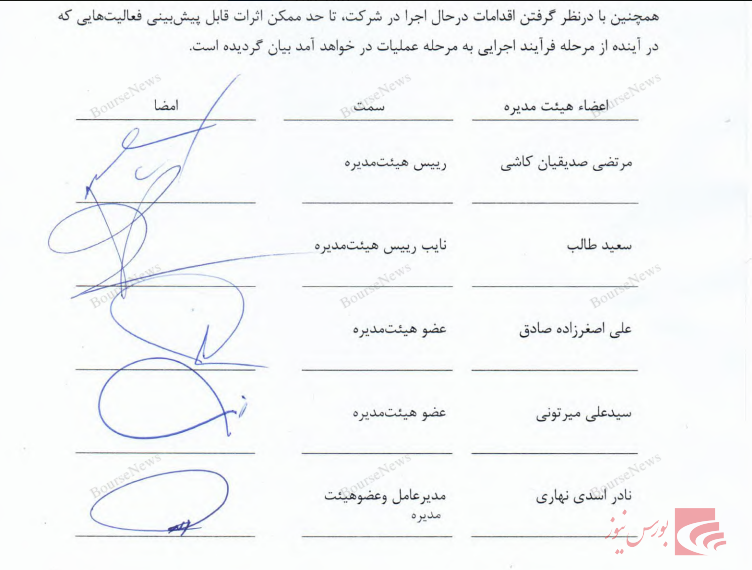 همچنین با درنظر گرفتن اقدامات درحال اجرا در شرکت، تا حد ممکن اثرات قابل پیش‌بینی فعالیت‌هایی که
در آینده از مرحله فرآیند اجرایی به مرحله عملیات در خواهد آمد بیان گردیده است.
BourseNews BourseNews BourseNews
اعضاء هیئت مدیره سمت امضا
مرتضی صدیقیان کاشی رییس هیئت‌مدیره
سعید طالب نایب رییس هیئت‌مدیره
BourseNews BourseNews BourseNews
علی اصغرزاده صادق عضو هیئت‌مدیره
سیدعلی میرتونی عضو هیئت‌مدیره
BourseNews BourseNews BourseNews
نادر اسدی نهاری مدیرعامل وعضوهیئت
مدیره
بورس نیوز